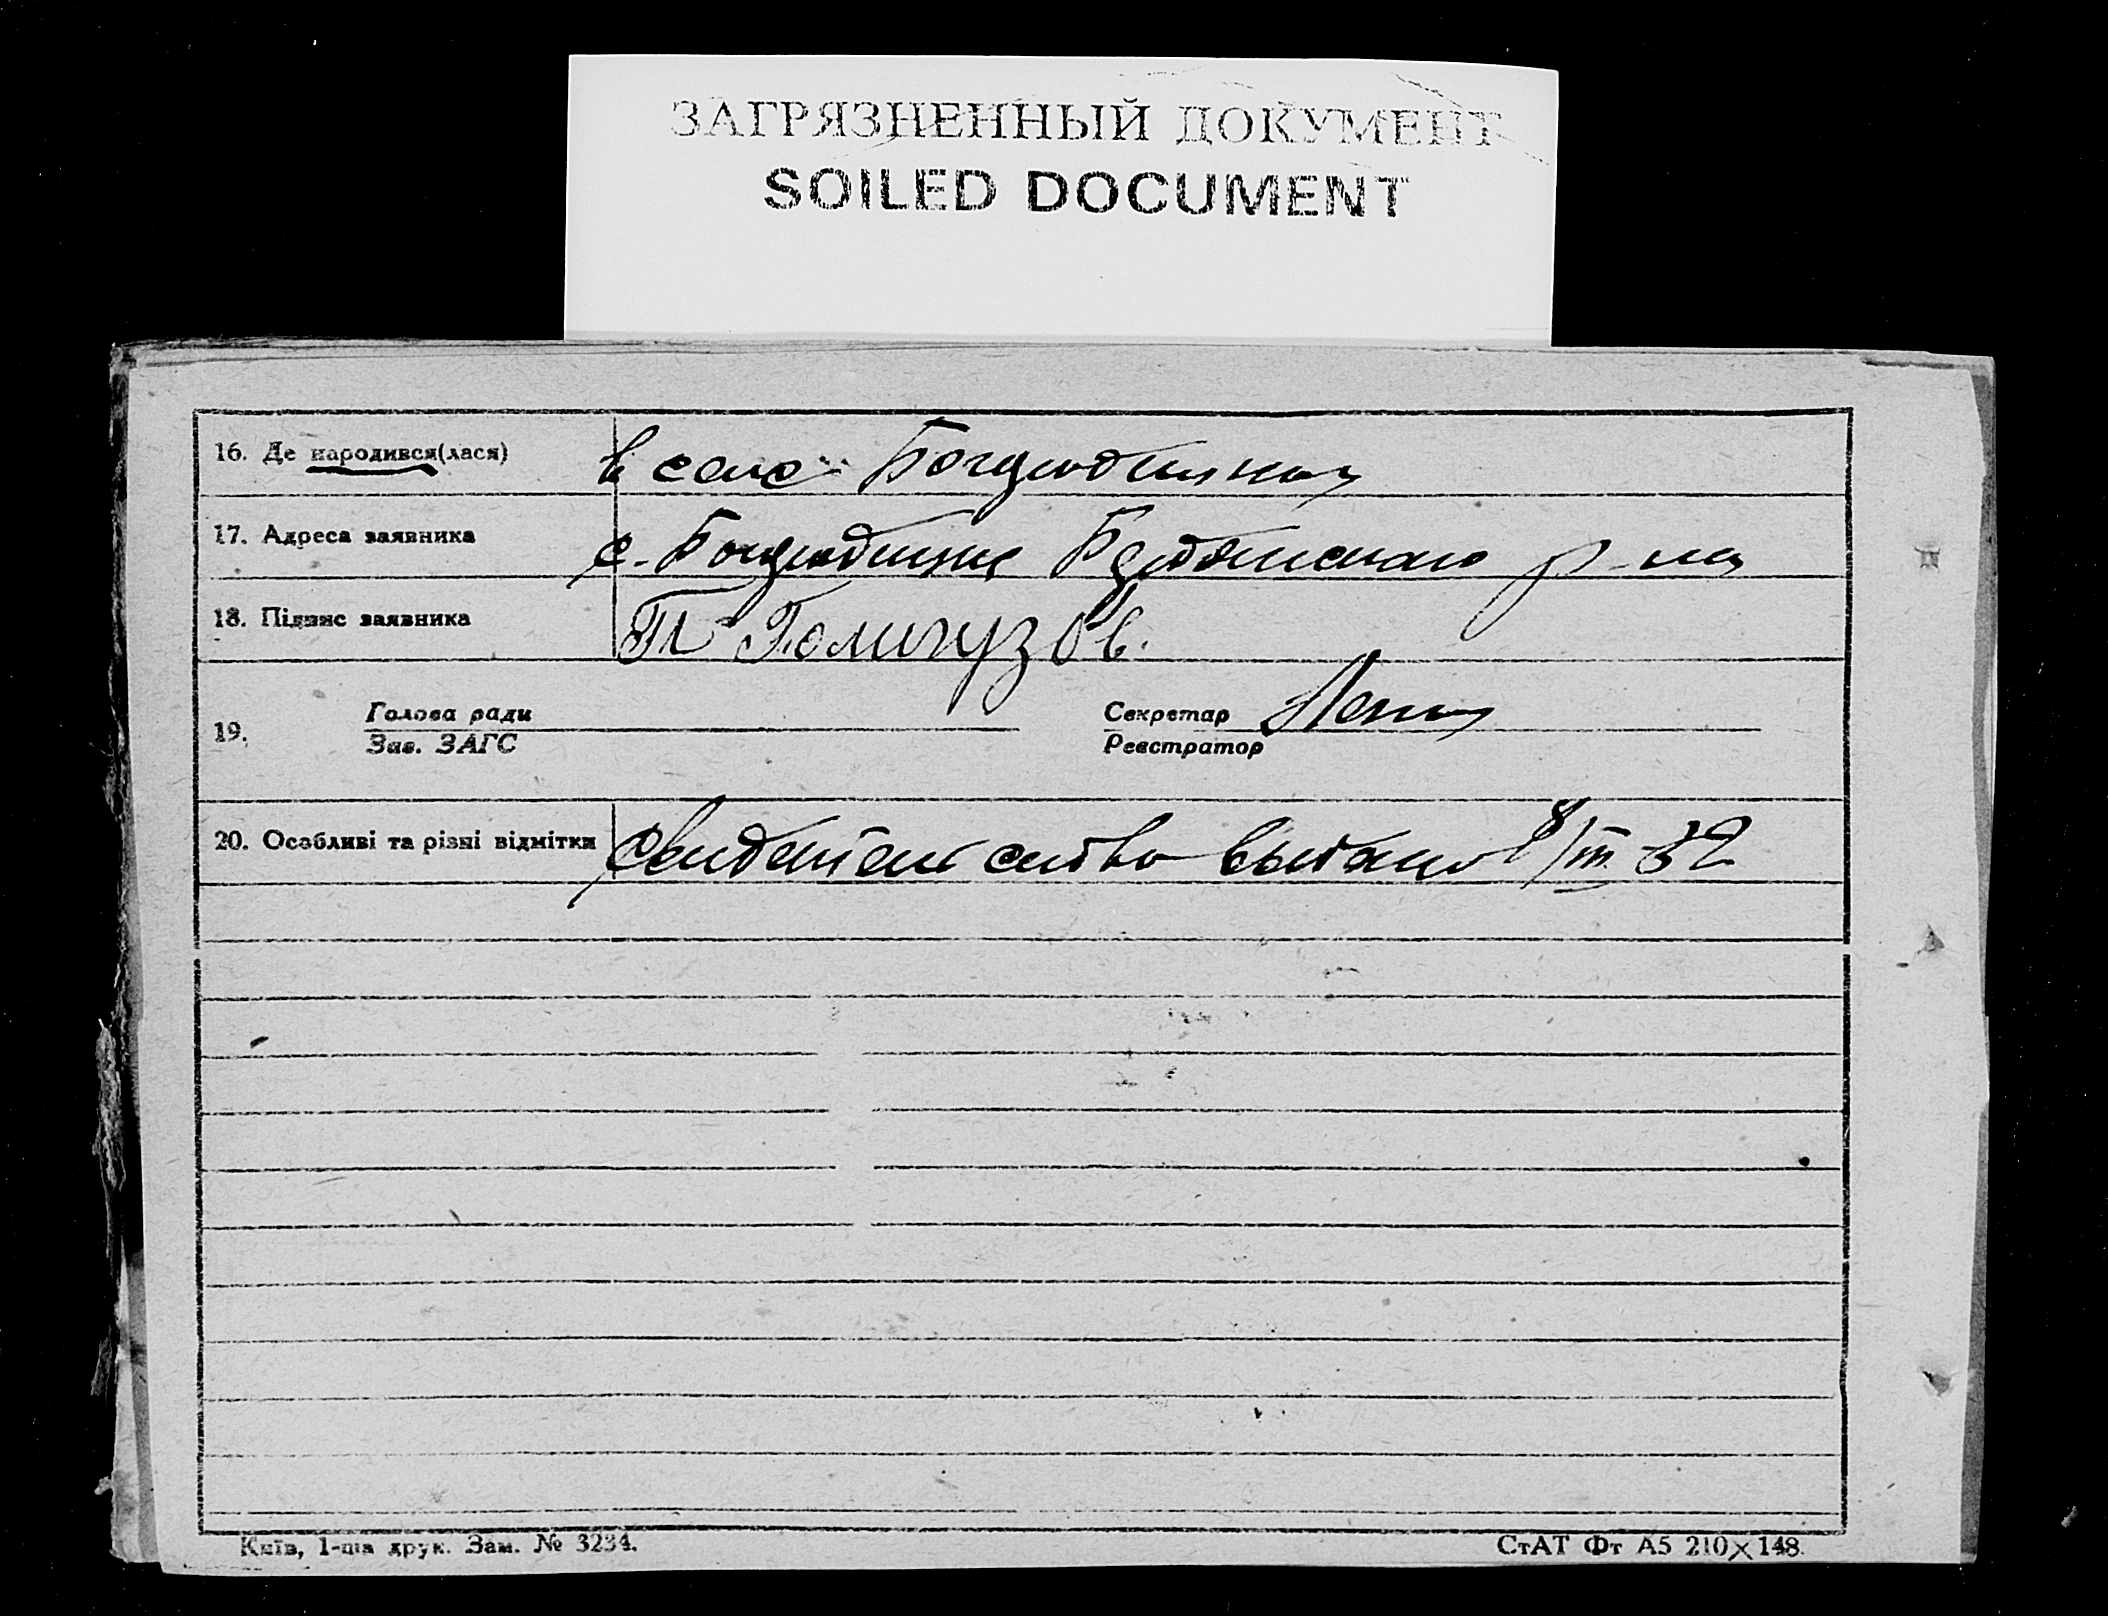 ЗАГРЯЗНЕННЫЙ ДОКУМЕНТ
SOILED DOCUMENT
16. Де народився(лася) в селе
17. Адреса заявника с. р-на
18. Підпис заявника
Голова ради Секретар
19.
Зав. ЗАГС Реєстратор
20. Особливі та різні відмітки свидетельство выдано 8/III-32
Київ, 1-ша друк. Зам. № 3234. СтАТ Фт А5 210×148.